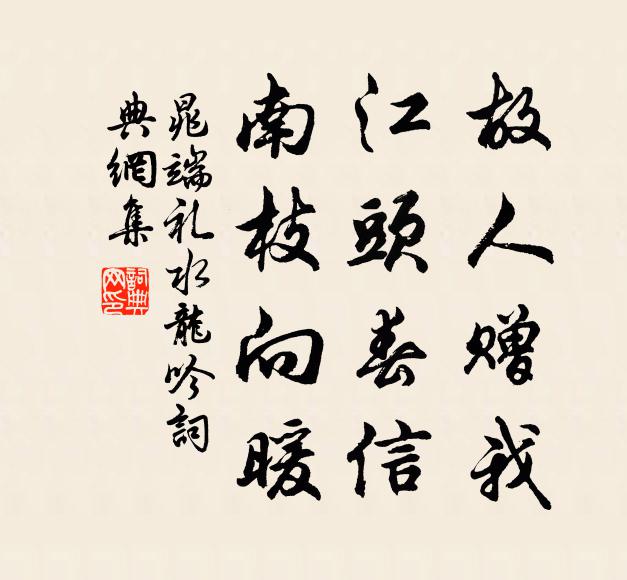 故人赠我
江頭春信
南枝向暖
晁端礼水龍吟詞
典網集
詞典
网印